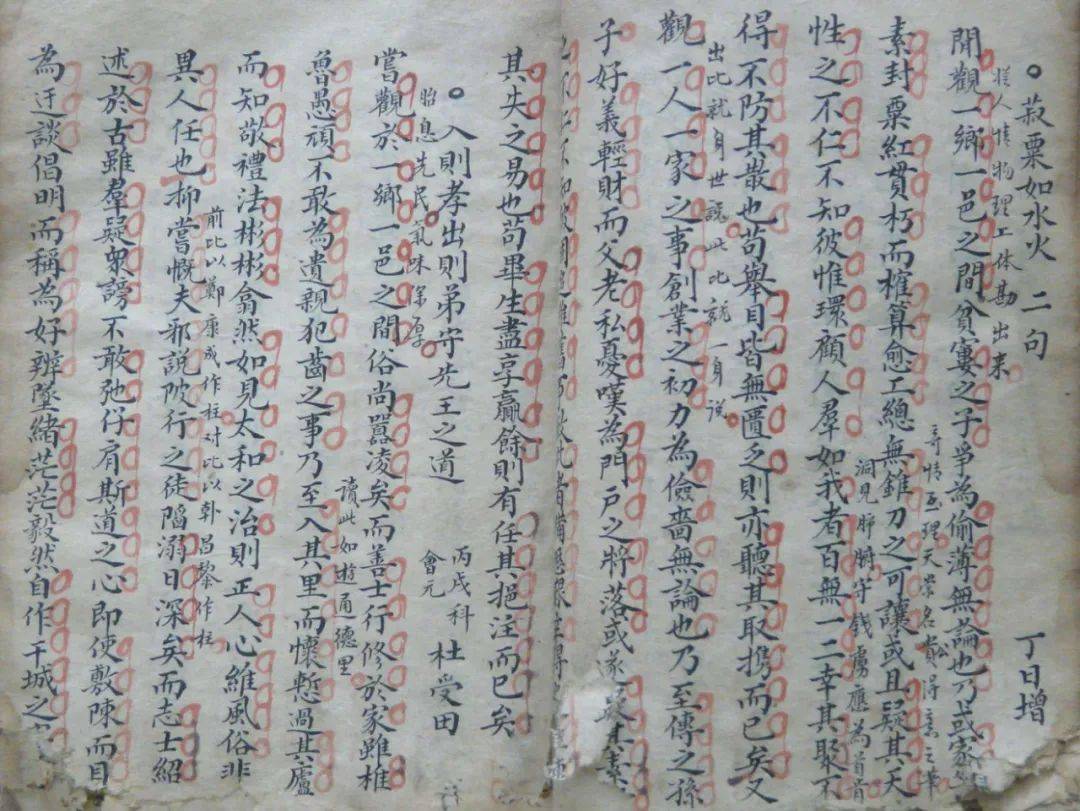 菽粟如水火 二句 丁日增
揆人情物理工体勘出来
閒觀一鄉一邑之間貧窶之子爭為偷薄無論也乃或家
奇情至理天崇名貴得意之筆
素封粟紅貫朽而榷算愈工總無錐刀之可讓或且疑其天
洞見肺腑守錢虜應為首肯
性之不仁不知彼惟環顧人羣如我者百無一二幸其聚不
得不防其散也苟舉目皆無匱乏則亦聽其取攜而已矣又
出比就身世說此比就一身說
觀一人一家之事創業之初力為儉嗇無論也乃至傳之孫
子好義輕財而父老私憂嘆為門戶之將落或遂
其失之易也苟畢生盡享贏餘則有任其挹注而已矣
入則孝出則弟守先王之道 丙戌科會元 杜受田
貽息先民氣味深厚
嘗觀於一鄉一邑之間俗尚囂凌矣而善士行修於家雖椎
讀此如遊通德里
魯愚頑不敢為遺親犯齒之事乃至入其里而懷慙過其廬
而知敬禮法彬彬翕然如見太和之治則正人心維風俗非
前比以鄭康成作柱对比以韩昌黎作柱
異人任也抑嘗慨夫邪說陂行之徒陷溺日深矣而志士紹
述於古雖羣疑眾謗不敢弛仔肩斯道之心即使敷陳而目
為迂談倡明而稱為好辨墜緒茫茫毅然自作干城之